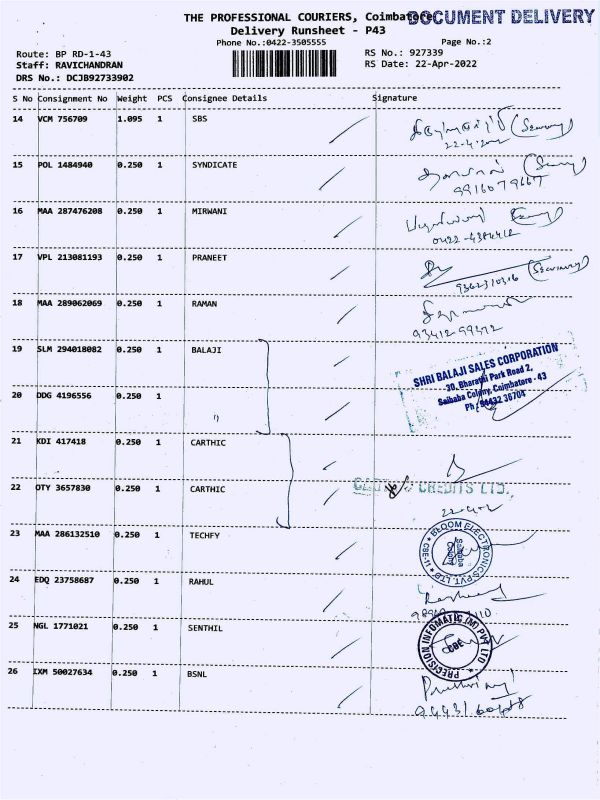 THE PROFESSIONAL COURIERS, Coimbatore
DOCUMENT DELIVERY
Delivery Runsheet - P43
Phone No.:0422-3505555
Page No.:2
Route: BP RD-1-43
RS No.: 927339
Staff: RAVICHANDRAN
RS Date: 22-Apr-2022
DRS No.: DCJB92733902
S No Consignment No Weight PCS Consignee Details Signature
14 VCM 756709 1.095 1 SBS
(Security)
15 POL 1484940 0.250 1 SYNDICATE
9916079667
16 MAA 287476208 0.250 1 MIRWANI
0422-4384412
17 VPL 213081193 0.250 1 PRANEET
(Security)
9362310316
18 MAA 289062069 0.250 1 RAMAN
93412-99312
19 SLM 294018082 0.250 1 BALAJI
SHRI BALAJI SALES CORPORATION
30, Bharathi Park Road 2,
Saibaba Colony, Coimbatore - 43
Ph : 94432 36704
20 DDG 4196556 0.250 1
"
21 KDI 417418 0.250 1 CARTHIC
22 OTY 3657830 0.250 1 CARTHIC
CREDITS LTD.,
23 MAA 286132510 0.250 1 TECHFY
BLOOM ELECTRONICS PVT. LTD
CBE-11
Saibaba Colony
24 EDQ 23758687 0.250 1 RAHUL
25 NGL 1771021 0.250 1 SENTHIL
PRECISION INFOMATIC (M) PVT LTD
CBE
26 IXM 50027634 0.250 1 BSNL